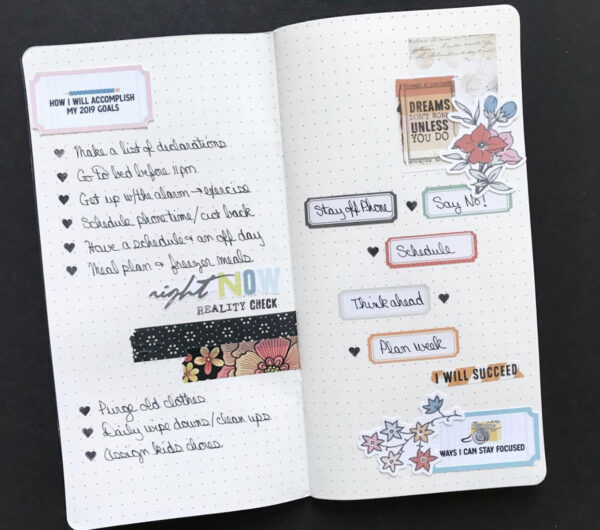 HOW I WILL ACCOMPLISH
MY 2019 GOALS
Make a list of declarations
Go To bed before 11pm
Get up w/the alarm → exercise
Schedule phone time/cut back
Have a schedule & an off day
Meal plan & freezer meals
right NOW
REALITY CHECK
Purge old clothes
Daily wipe downs/clean ups
Assign kids chores
DREAMS
DON'T WORK
UNLESS
YOU DO
Stay off Phone
Say No!
Schedule
Think ahead
Plan week
I WILL SUCCEED
WAYS I CAN STAY FOCUSED